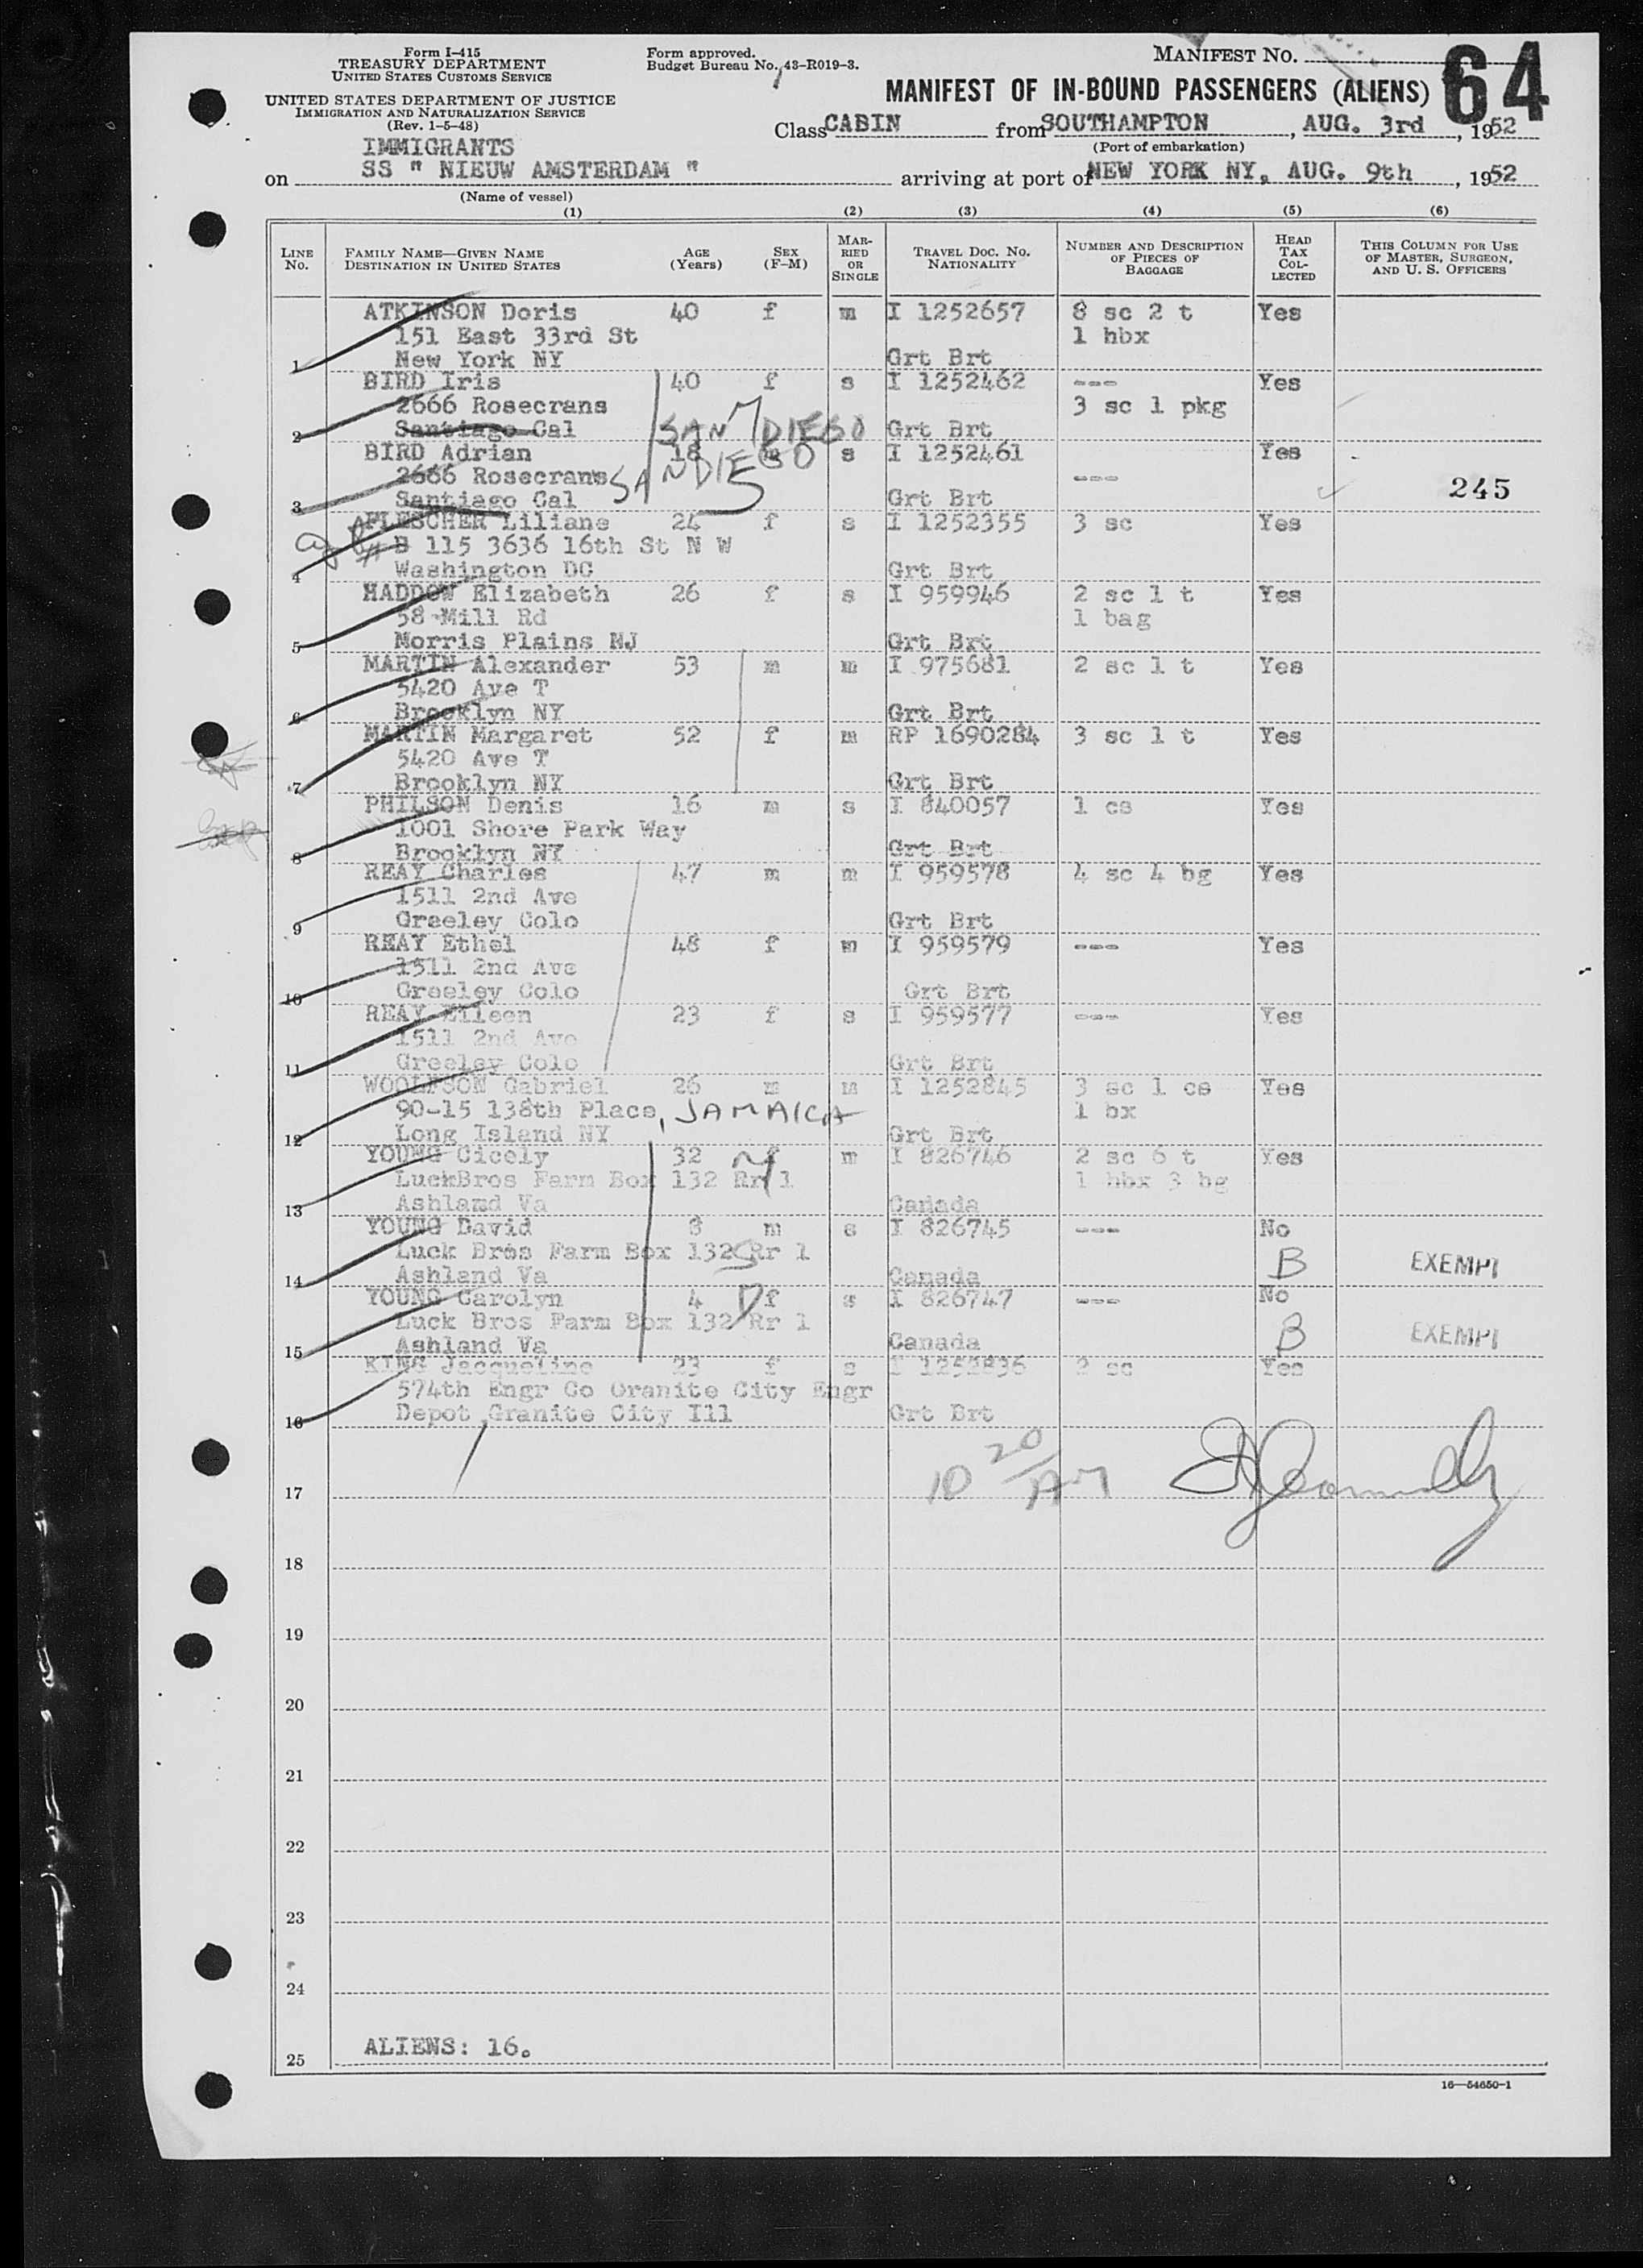 Form I-415
TREASURY DEPARTMENT
UNITED STATES CUSTOMS SERVICE
Form approved.
Budget Bureau No. 43-R019-3.
MANIFEST NO.
64
UNITED STATES DEPARTMENT OF JUSTICE
IMMIGRATION AND NATURALIZATION SERVICE
(Rev. 1-5-48)
MANIFEST OF IN-BOUND PASSENGERS (ALIENS)
Class CABIN from SOUTHAMPTON, AUG. 3rd, 1952
(Port of embarkation)
IMMIGRANTS
on SS " NIEUW AMSTERDAM " arriving at port of NEW YORK NY, AUG. 9th, 1952
(Name of vessel)
(1) (2) (3) (4) (5) (6)
LINE NO. FAMILY NAME—GIVEN NAME DESTINATION IN UNITED STATES AGE (Years) SEX (F-M) MARRIED OR SINGLE TRAVEL DOC. NO. NATIONALITY NUMBER AND DESCRIPTION OF PIECES OF BAGGAGE HEAD TAX COLLECTED THIS COLUMN FOR USE OF MASTER, SURGEON, AND U. S. OFFICERS
ATKINSON Doris 40 f m I 1252657 8 sc 2 t Yes
151 East 33rd St 1 hbx
1 New York NY Grt Brt
BIRD Iris 40 f s I 1252462 --- Yes
2666 Rosecrans 3 sc 1 pkg
2 Santiago Cal SAN DIEGO Grt Brt
BIRD Adrian 18 s I 1252461 Yes
2666 Rosecrans SAN DIEGO ---
3 Santiago Cal Grt Brt 245
FLESCHER Liliane 24 f s I 1252355 3 sc Yes
# B 115 3636 16th St N W
4 Washington DC Grt Brt
HADDOW Elizabeth 26 f s I 959946 2 sc 1 t Yes
58 Mill Rd 1 bag
5 Morris Plains NJ Grt Brt
MARTIN Alexander 53 m m I 975681 2 sc 1 t Yes
5420 Ave T
6 Brooklyn NY Grt Brt
MARTIN Margaret 52 f m RP 1690284 3 sc 1 t Yes
5420 Ave T
7 Brooklyn NY Grt Brt
PHILSON Denis 16 m s I 840057 1 cs Yes
1001 Shore Park Way
8 Brooklyn NY Grt Brt
REAY Charles 47 m m I 959578 4 sc 4 bg Yes
1511 2nd Ave
9 Greeley Colo Grt Brt
REAY Ethel 48 f m I 959579 --- Yes
1511 2nd Ave
10 Greeley Colo Grt Brt
REAY Eileen 23 f s I 959577 --- Yes
1511 2nd Ave
11 Greeley Colo Grt Brt
WOOLFSON Gabriel 26 m m I 1252845 3 sc 1 cs Yes
90-15 138th Place, JAMAICA 1 bx
12 Long Island NY Grt Brt
YOUNG Cicely 32 f m I 826746 2 sc 6 t Yes
LuckBros Farm Box 132 Rr 1 1 hbx 3 bg
13 Ashland Va Canada
YOUNG David 8 m s I 826745 --- No
Luck Bros Farm Box 132 Rr 1 B EXEMPT
14 Ashland Va Canada
YOUNG Carolyn 4 f s I 826747 --- No
Luck Bros Farm Box 132 Rr 1 B EXEMPT
15 Ashland Va Canada
KING Jacqueline 23 f s I 1252836 2 sc Yes
574th Engr Co Granite City Engr
16 Depot Granite City Ill Grt Brt
10 20/AM
17
18
19
20
21
22
23
24
25 ALIENS: 16.
16—54650-1